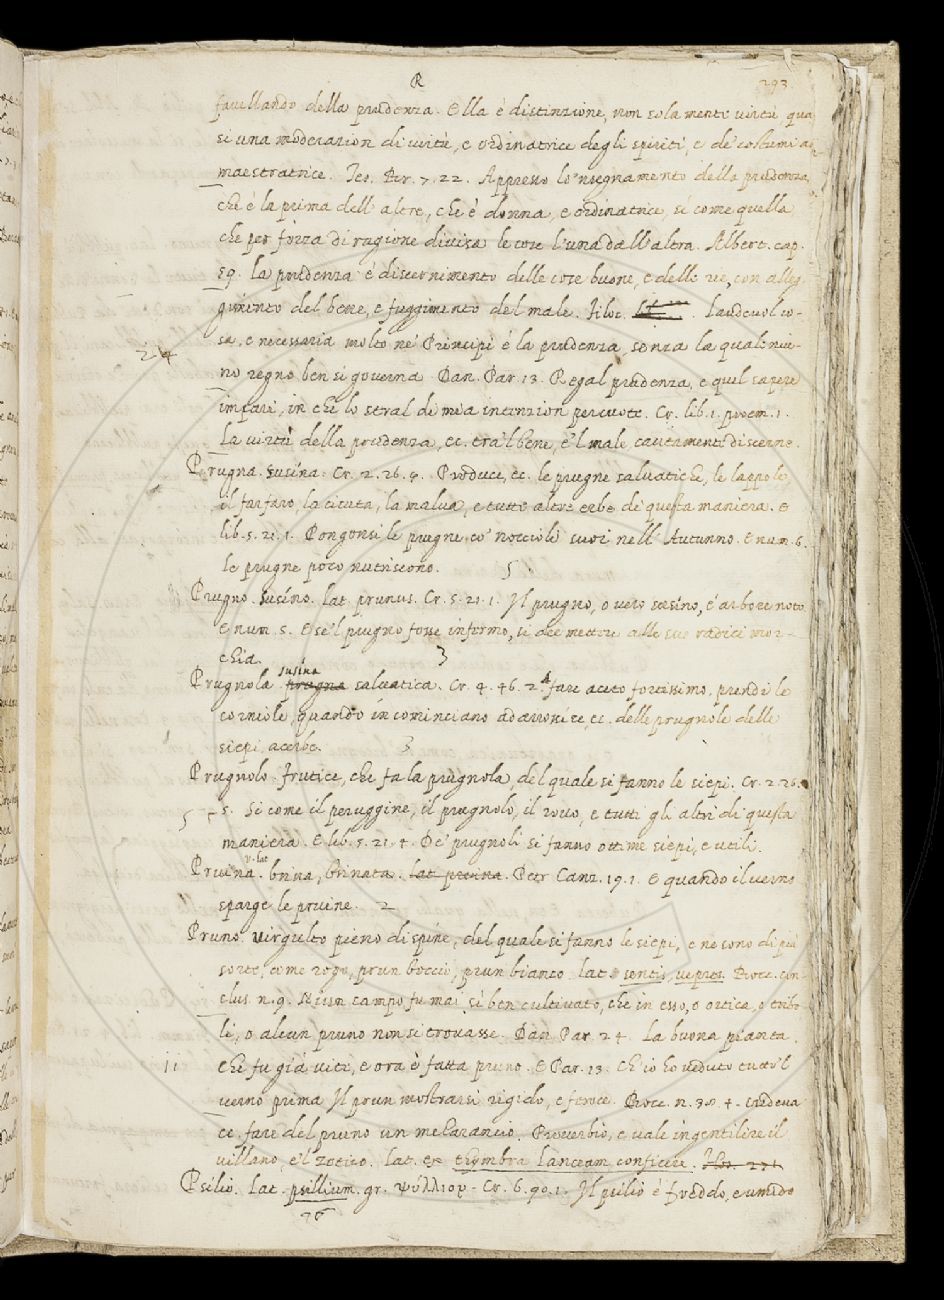 R
293
favellando della prudenza. Ella è distinzione, non solamente virtù, qua
si una moderazion di virtù, e ordinatrice degli spiriti, e de' costumi am
maestratrice. Tes. Br. 7. 22. Appresso lo 'nsegnamento della prudenza,
che è la prima dell' altre, che è donna, e ordinatrice, sì come quella
che per forza di ragione divisa le cose l'una dall' altra. Albert. cap.
59. La prudenza è discernimento delle cose buone, e delle ree, con alleg
gimento del bene, e fuggimento del male. Filoc. Laudevol co-
sa, e necessaria molto ne' Principi è la prudenza, senza la quale niu-
24
no regno ben si governa. Dan. Par. 13. Regal prudenza, e quel vedere
impari, in che lo stral di mia intenzion percuote. Cr. lib. 1. proem. 1.
La virtù della prudenza, ec. tra 'l bene, e 'l male, cautamente discerne.
Prugna. Susina. Cr. 2. 26. 9. Produce, ec. le prugne salvatiche, le lappole,
il farfaro, la cicuta, la malva, e tutte altre erbe di questa maniera. E
lib. 5. 21. 1. Pongonsi le prugne co' noccioli suoi nell' Autunno. E num. 6.
le prugne poco nutriscono. 5
Prugno. Susino. Lat. prunus. Cr. 5. 21. 1. Il prugno, o vero susino, è arbore noto.
E num. 5. E se 'l prugno fosse infermo, si dee mettere alle sue radici mor-
chia. 3
Prugnola. prugna susina salvatica. Cr. 4. 46. 2. A fare aceto fortissimo, prendi le
corniole, quando incominciano ad arrossire, ec. delle prugnole delle
siepi, acerbe. 3
Prugnolo. Frutice, che fa la prugnola, del quale si fanno le siepi. Cr. 2. 26.
5 5. Sì come il peruggine, il prugnolo, il rovo, e tutti gli altri di questa
maniera. E lib. 5. 21. 4. De' prugnoli si fanno ottime siepi, e utili.
Pruina. v. lat. brina, brinata. lat. pruina. Petr. Canz. 19. 1. E quando il verno
sparge le pruine. 2
Pruno. Virgulto pieno di spine, del quale si fanno le siepi, e ne sono di più
sorte, come rogo, prun boccio, prun bianco. lat. sentis, vepres. Bocc. con-
clus. n. 9. Niun campo fu mai sì ben cultivato, che in esso, o ortica, o tribo-
li, o alcun pruno non si trovasse. Dan. Par. 24. La buona pianta,
11 che fu già vite, e ora è fatta pruno. E Par. 13. Ch' io ho veduto tutto 'l
verno prima Il prun mostrarsi rigido, e feroce. Bocc. n. 30. 4. Credeva
ec. fare del pruno un melarancio. Proverbio, e vale ingentilire il
villano, e 'l zotico. Lat. ex thymbra lanceam conficere.
Psilio. Lat. psillium. gr. ψύλλιον. Cr. 6. 90. 1. Il psilio è freddo, e umido
76